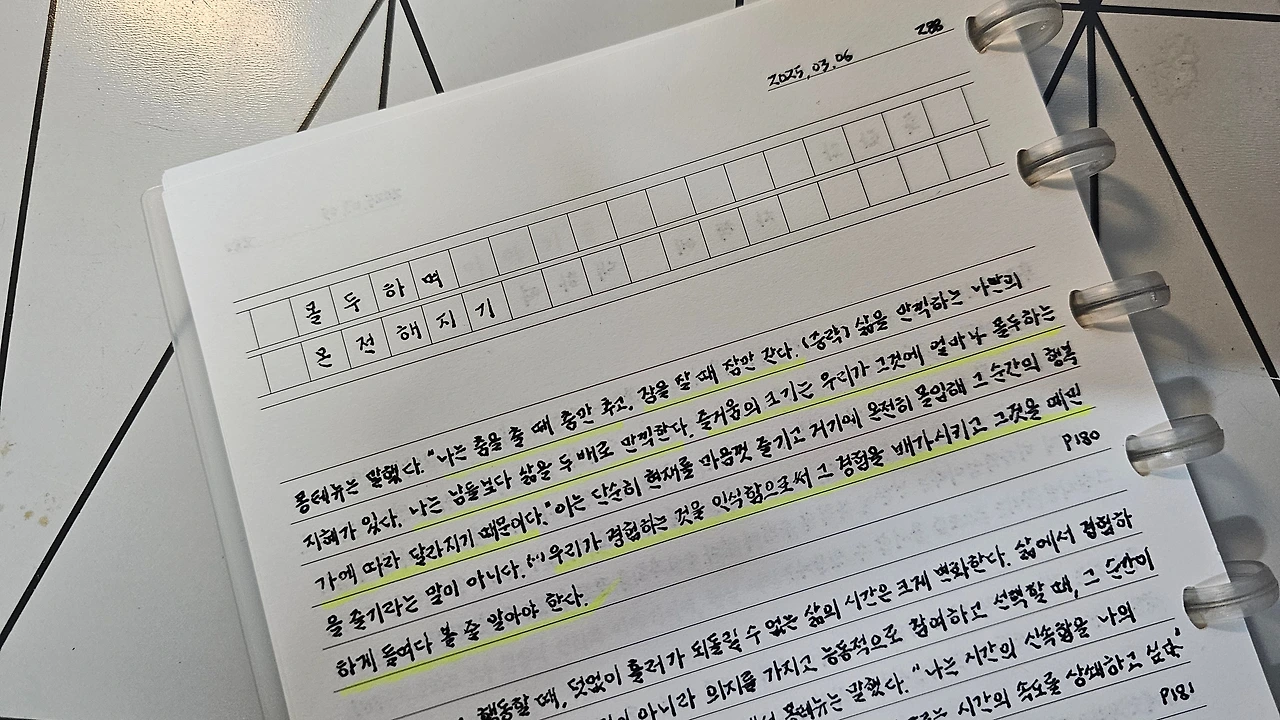 288
2025. 03. 06
몰두하며
온전해지기
몽테뉴는 말했다. "나는 춤을 출 때 춤만 추고, 잠을 잘 때 잠만 잔다. (중략) 삶을 만끽하는 나만의
지혜가 있다. 나는 남들보다 삶을 두 배로 만끽한다. 즐거움의 크기는 우리가 그것에 얼마나 몰두하는
가에 따라 달라지기 때문이다." 이는 단순히 현재를 마음껏 즐기고 거기에 온전히 몰입해 그 순간의 행복
을 즐기라는 말이 아니다. (…) 우리가 경험하는 것을 인식함으로써 그 경험을 배가시키고 그것을 예민
하게 들여다 볼 줄 알아야 한다.
P180
행동할 때, 덧없이 흘러가 되돌릴 수 없는 삶의 시간은 크게 변화한다. 삶에서 경험하
아니라 의지를 가지고 능동적으로 참여하고 선택할 때, 그 순간이
몽테뉴는 말했다. "나는 시간의 신속함을 나의
시간의 속도를 상쇄하고 싶다"
P181